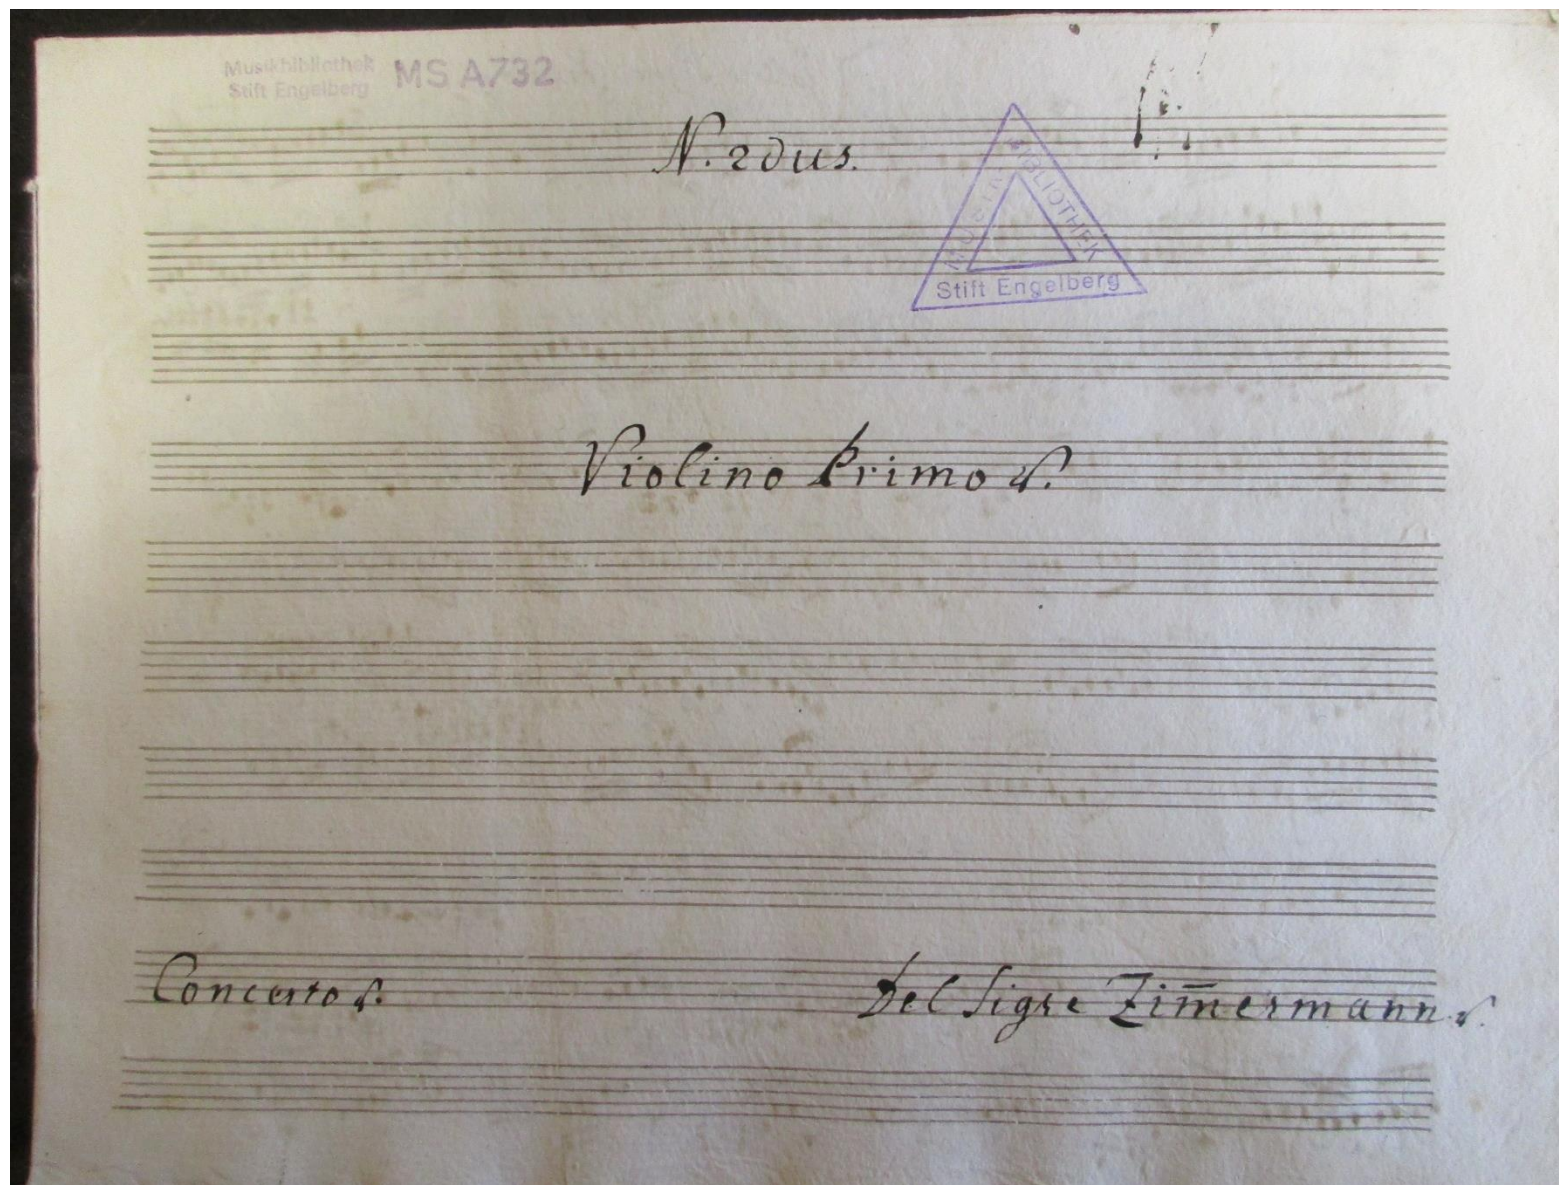 Musikbibliothek
Stift Engelberg
MS A732
N. 2dus.
MUSIKBIBLIOTHEK
Stift Engelberg
Violino Primo
Concerto
Del Sigre Zim̅ermann